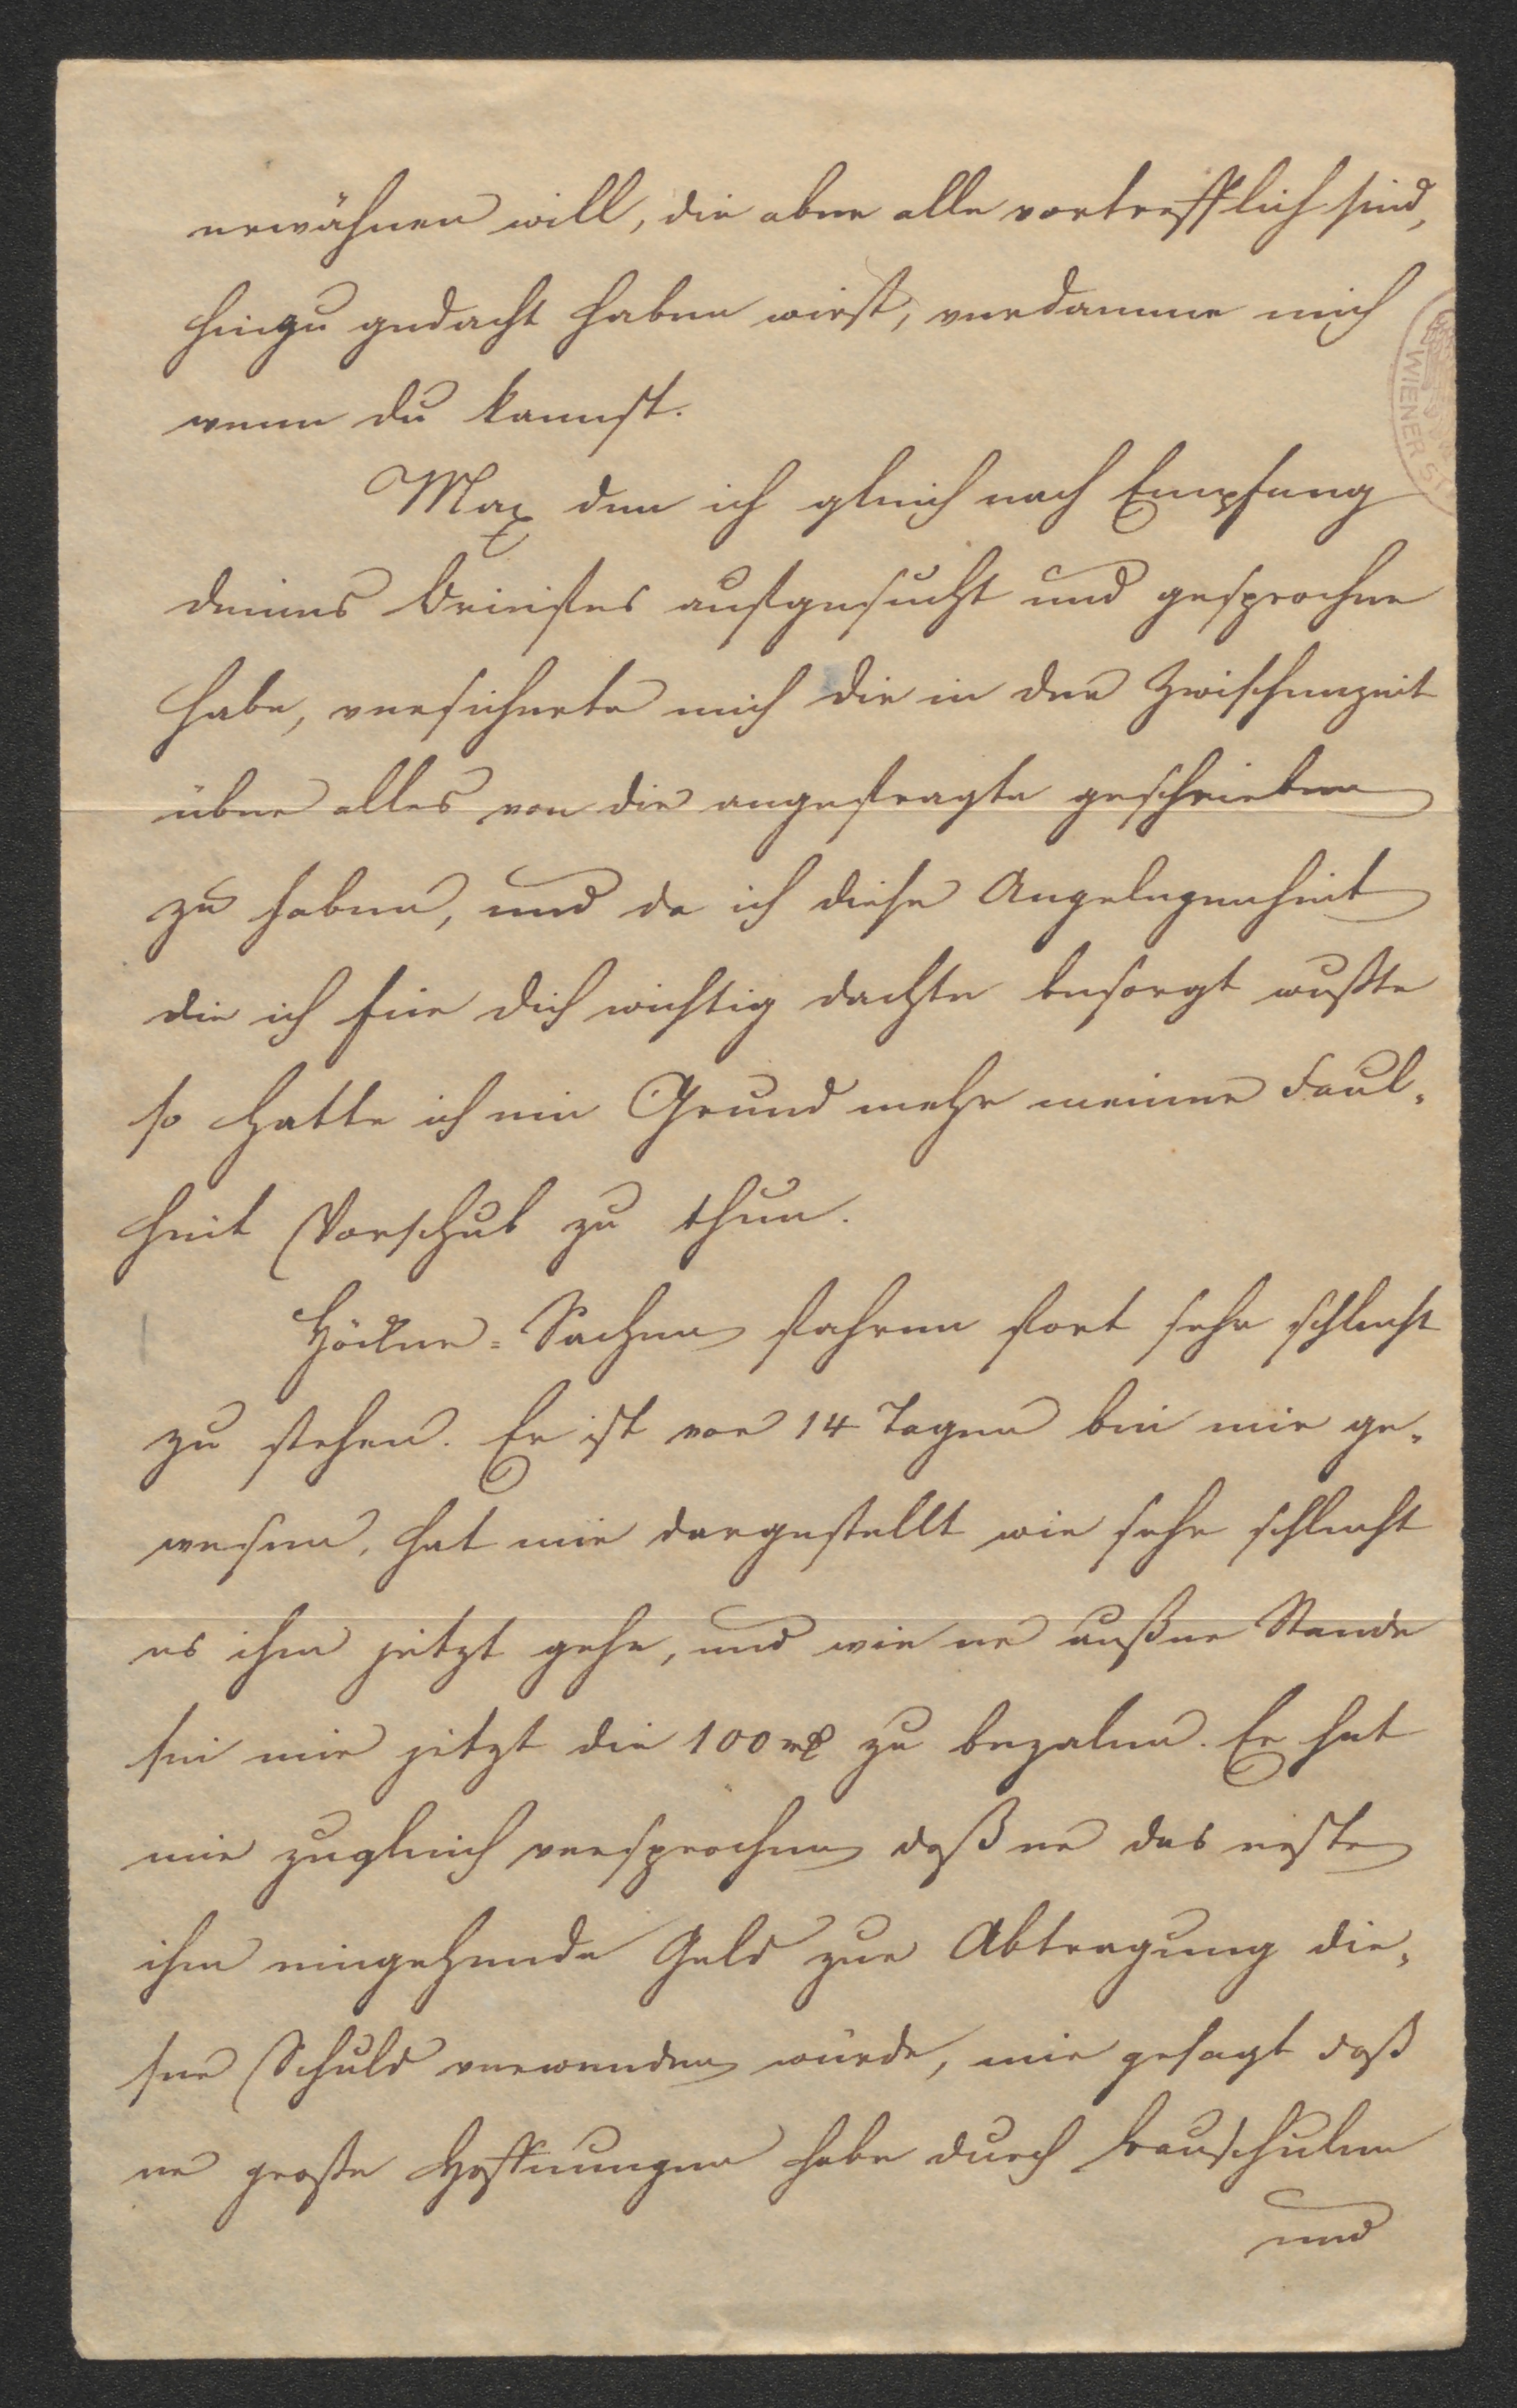 erwähnen will, die aber alle vortrefflich sind,
hinzu gedacht haben wirst, verdamme mich
wenn du kannst.
Max den ich gleich nach Empfang
deines Briefes aufgesucht und gesprochen
habe, versicherte mich dir in der Zwischenzeit
über alles von dir angefragte geschrieben
zu haben, und da ich diese Angelegenheit
die ich für dich wichtig dachte besorgt wußte
so hatte ich ein Grund mehr meiner Faul-
heit Vorschub zu thun.
Höckner=Sachen fahren fort sehr schlecht
zu stehen. Er ist vor 14 Tagen bei mir ge-
wesen, hat mir dargestellt wie sehr schlecht
es ihm jetzt gehe, und wie er außer Stande
sei mir jetzt die 100 zu bezalen. Er hat
mir zugleich versprochen daß er das erste
ihm eingehende Geld zur Abtragung die-
ser Schuld verwenden würde, mir gesagt daß
er große Hoffnungen habe durch
und
WIENER ST